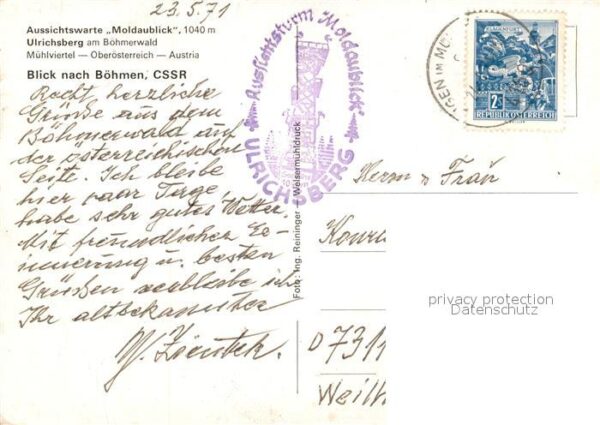 23.5.71
Aussichtswarte „Moldaublick", 1040 m
Ulrichsberg am Böhmerwald
Mühlviertel — Oberösterreich — Austria
Blick nach Böhmen, CSSR
Recht herzliche
Grüße aus dem
Böhmerwald auf
der österreichischen
Seite. Ich bleibe
hier paar Tage,
habe sehr gutes Wetter.
Mit freundlicher Er-
innerung u. besten
Grüßen verbleibe ich
Ihr altbekannter
Foto: Ing. Reininger Welsermühldruck
Aussichtsturm Moldaublick
ULRICHSBERG
KLAGENFURT
2S
REPUBLIK ÖSTERREICH
GEN IM MÜ
Herrn u Frau
Konra
D 7311
Weilh
privacy protection
Datenschutz